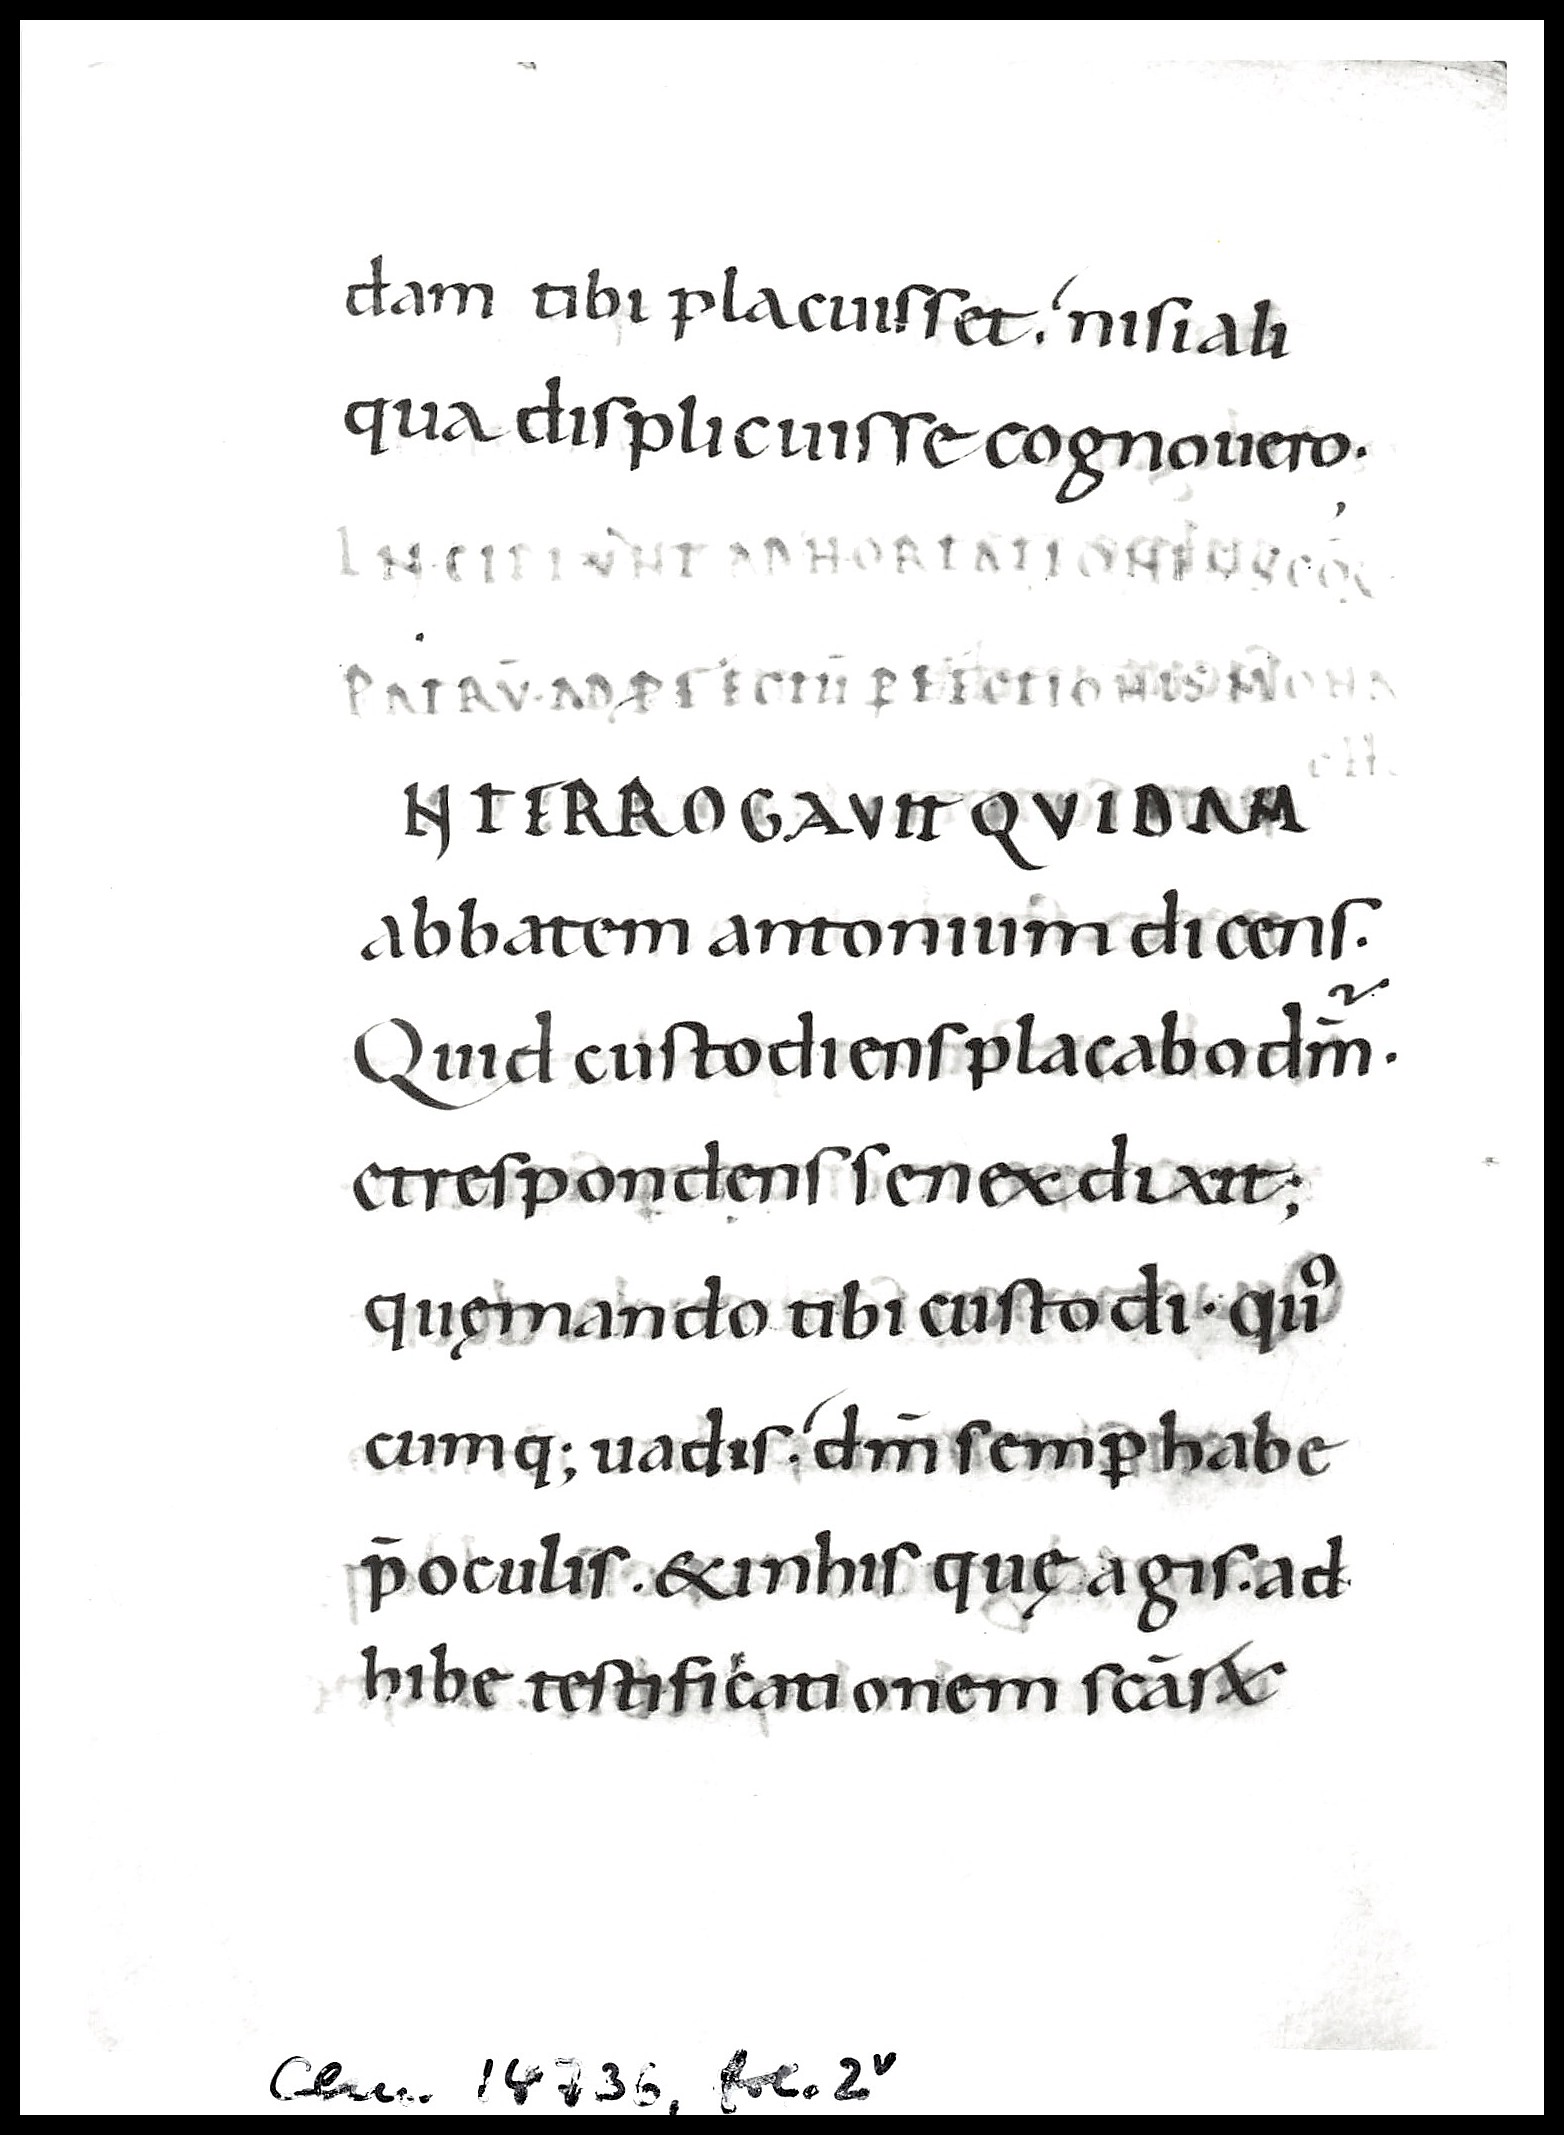 dam tibi placuisset. nisi ali
qua displicuisse cognouero.
INCIPIUNT ADHORTATIONES SCŌR
PATRŪ. AD PFECTŪ PFECTIONIS MONA
chi.
NTERROGAVIT QVIDAM
abbatem antonium dicens.
Quid custodiens placabo dm̄.
et respondens senex dixit;
quę mando tibi custodi. quo
cumq; uadis. dm̄ semꝑ habe
p̄ oculis. & in his quę agis. ad
hibe testificationem scārx
Clm. 14736, fol. 2v